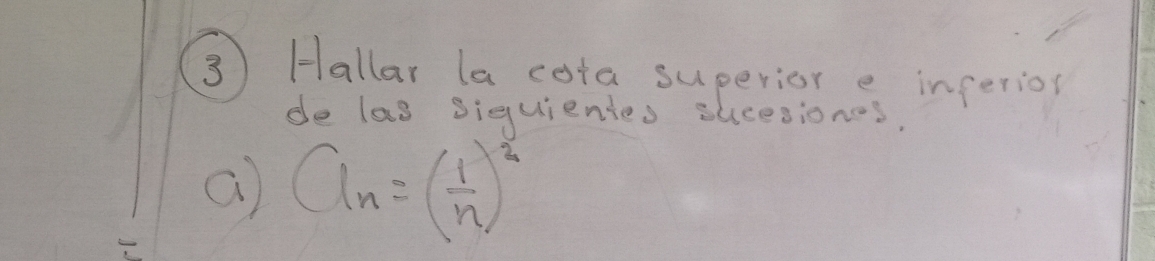 ③ Hallar la cota superior e inferior
de las siguientes sucesiones.
a) an = (1/n)²